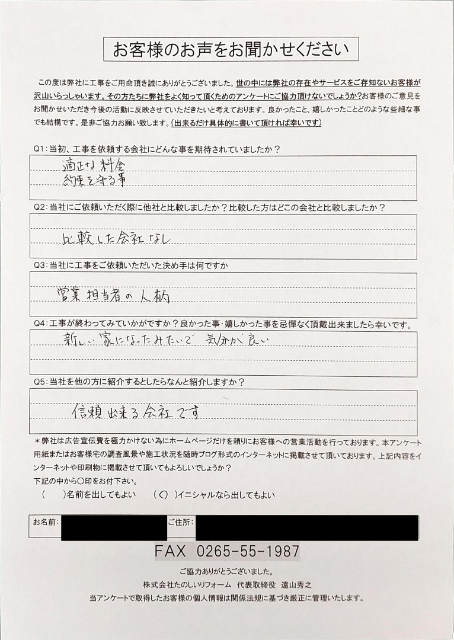 お客様のお声をお聞かせください
この度は弊社に工事をご用命頂き誠にありがとうございました。世の中には弊社の存在やサービスをご存知ないお客様が
沢山いらっしゃいます。その方たちに弊社をよく知って頂くためのアンケートにご協力頂けないでしょうか?お客様のご意見を
お聞かせいただき今後の活動に反映させていただきたいと考えております。良かったこと、嬉しかったことどのような些細な事
でも結構です。是非ご協力お願い致します。(出来るだけ具体的に書いて頂ければ幸いです)
Q1:当初、工事を依頼する会社にどんな事を期待されていましたか?
適正な料金
約束を守る事
Q2:当社にご依頼いただく際に他社と比較しましたか?比較した方はどこの会社と比較しましたか?
比較した会社なし
Q3:当社に工事をご依頼いただいた決め手は何ですか
営業担当者の人柄
Q4:工事が終わってみていかがですか?良かった事・嬉しかった事を忌憚なく頂戴出来ましたら幸いです。
新しい家になったみたいで 気分が良い
Q5:当社を他の方に紹介するとしたらなんと紹介しますか?
信頼出来る会社です
*弊社は広告宣伝費を極力かけない為にホームページだけを頼りにお客様への営業活動を行っております。本アンケート
用紙またはお客様宅の調査風景や施工状況を随時ブログ形式のインターネットに掲載させて頂いております。上記内容をイ
ンターネットや印刷物に掲載させて頂いてもよろしいでしょうか?
下記の中から〇印をお付下さい。
( )名前を出してもよい (〇)イニシャルなら出してもよい
お名前: ご住所:
FAX 0265-55-1987
ご協力ありがとうございました。
株式会社たのしいリフォーム 代表取締役 遠山秀之
当アンケートで取得したお客様の個人情報は関係法規に基づき厳正に管理いたします。